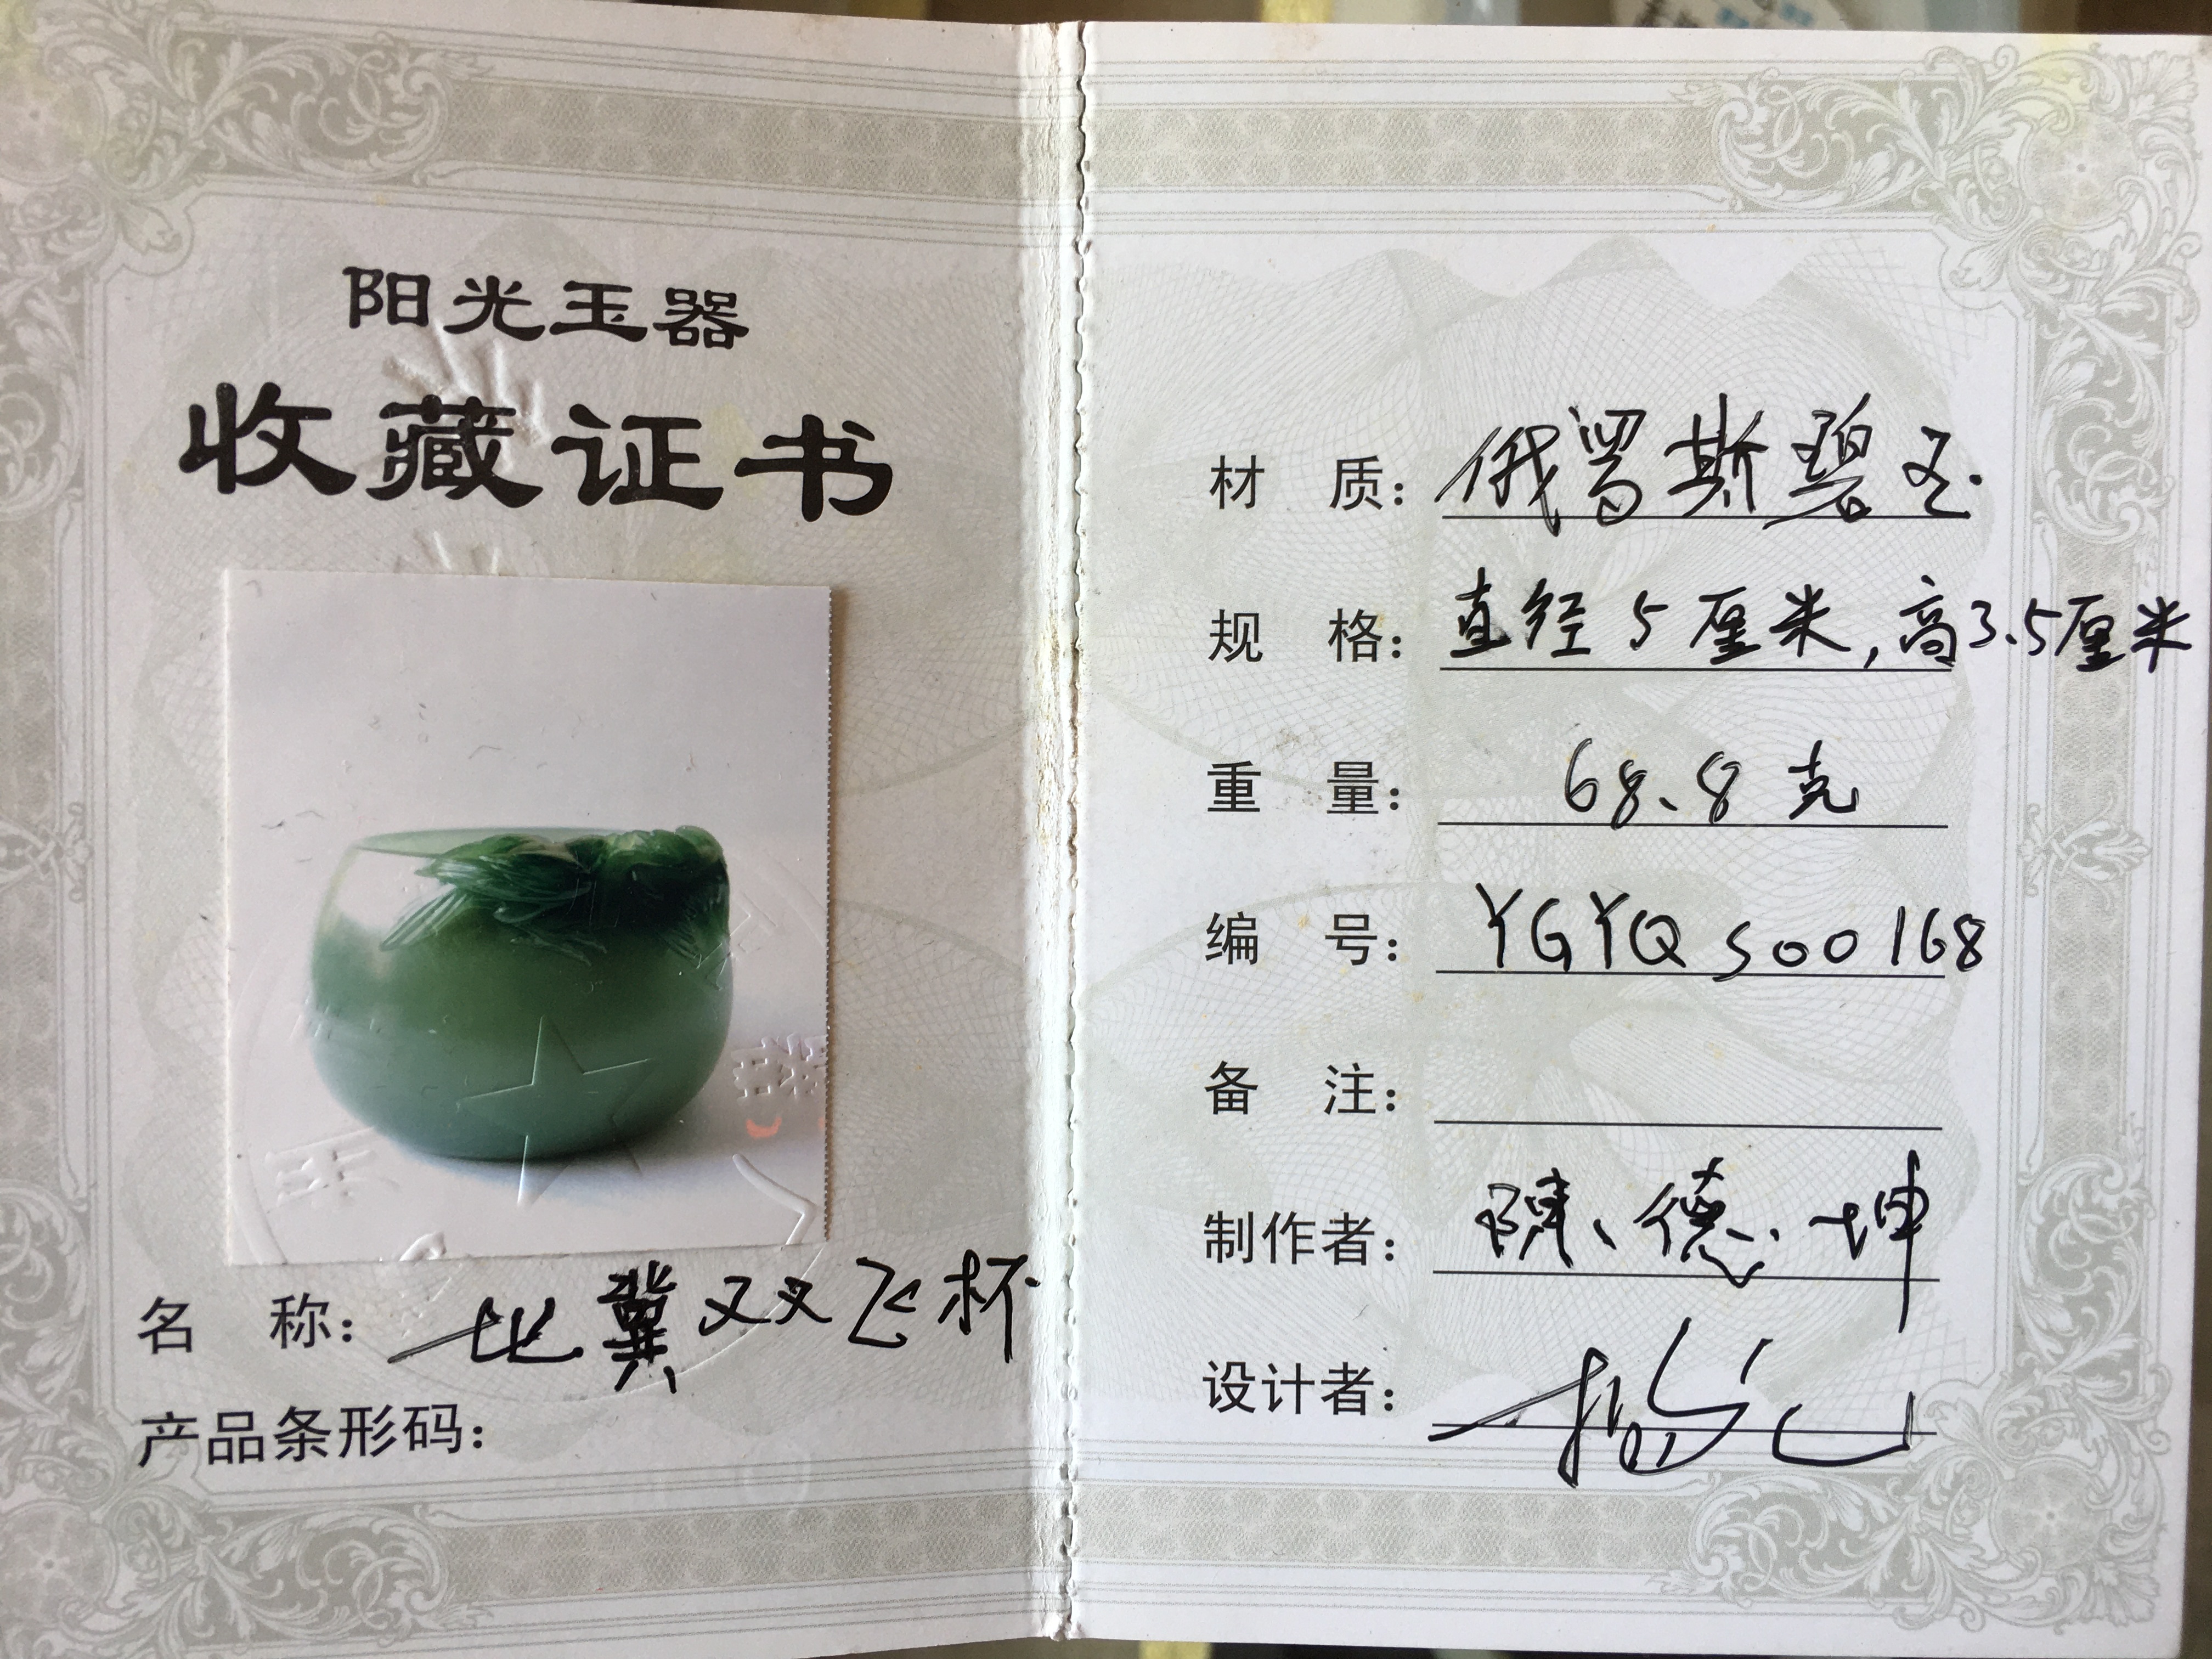 阳光玉器
收藏证书
名 称：比翼双双飞杯
产品条形码：
材 质：俄罗斯碧玉
规 格：直径5厘米,高3.5厘米
重 量：68.8克
编 号：YGYQS00168
备 注：
制作者：陳、德、坤
设计者：